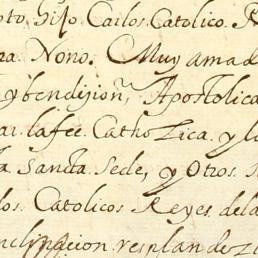 pto hijo Carlos Catolico. R
ra. Nono. Muy amad
y bendijion, Apostolica
la fee Catholica. y l
a Sancta Sede, y Otros.
los Catolicos Reyes. dela
nclinacion. resplandezi